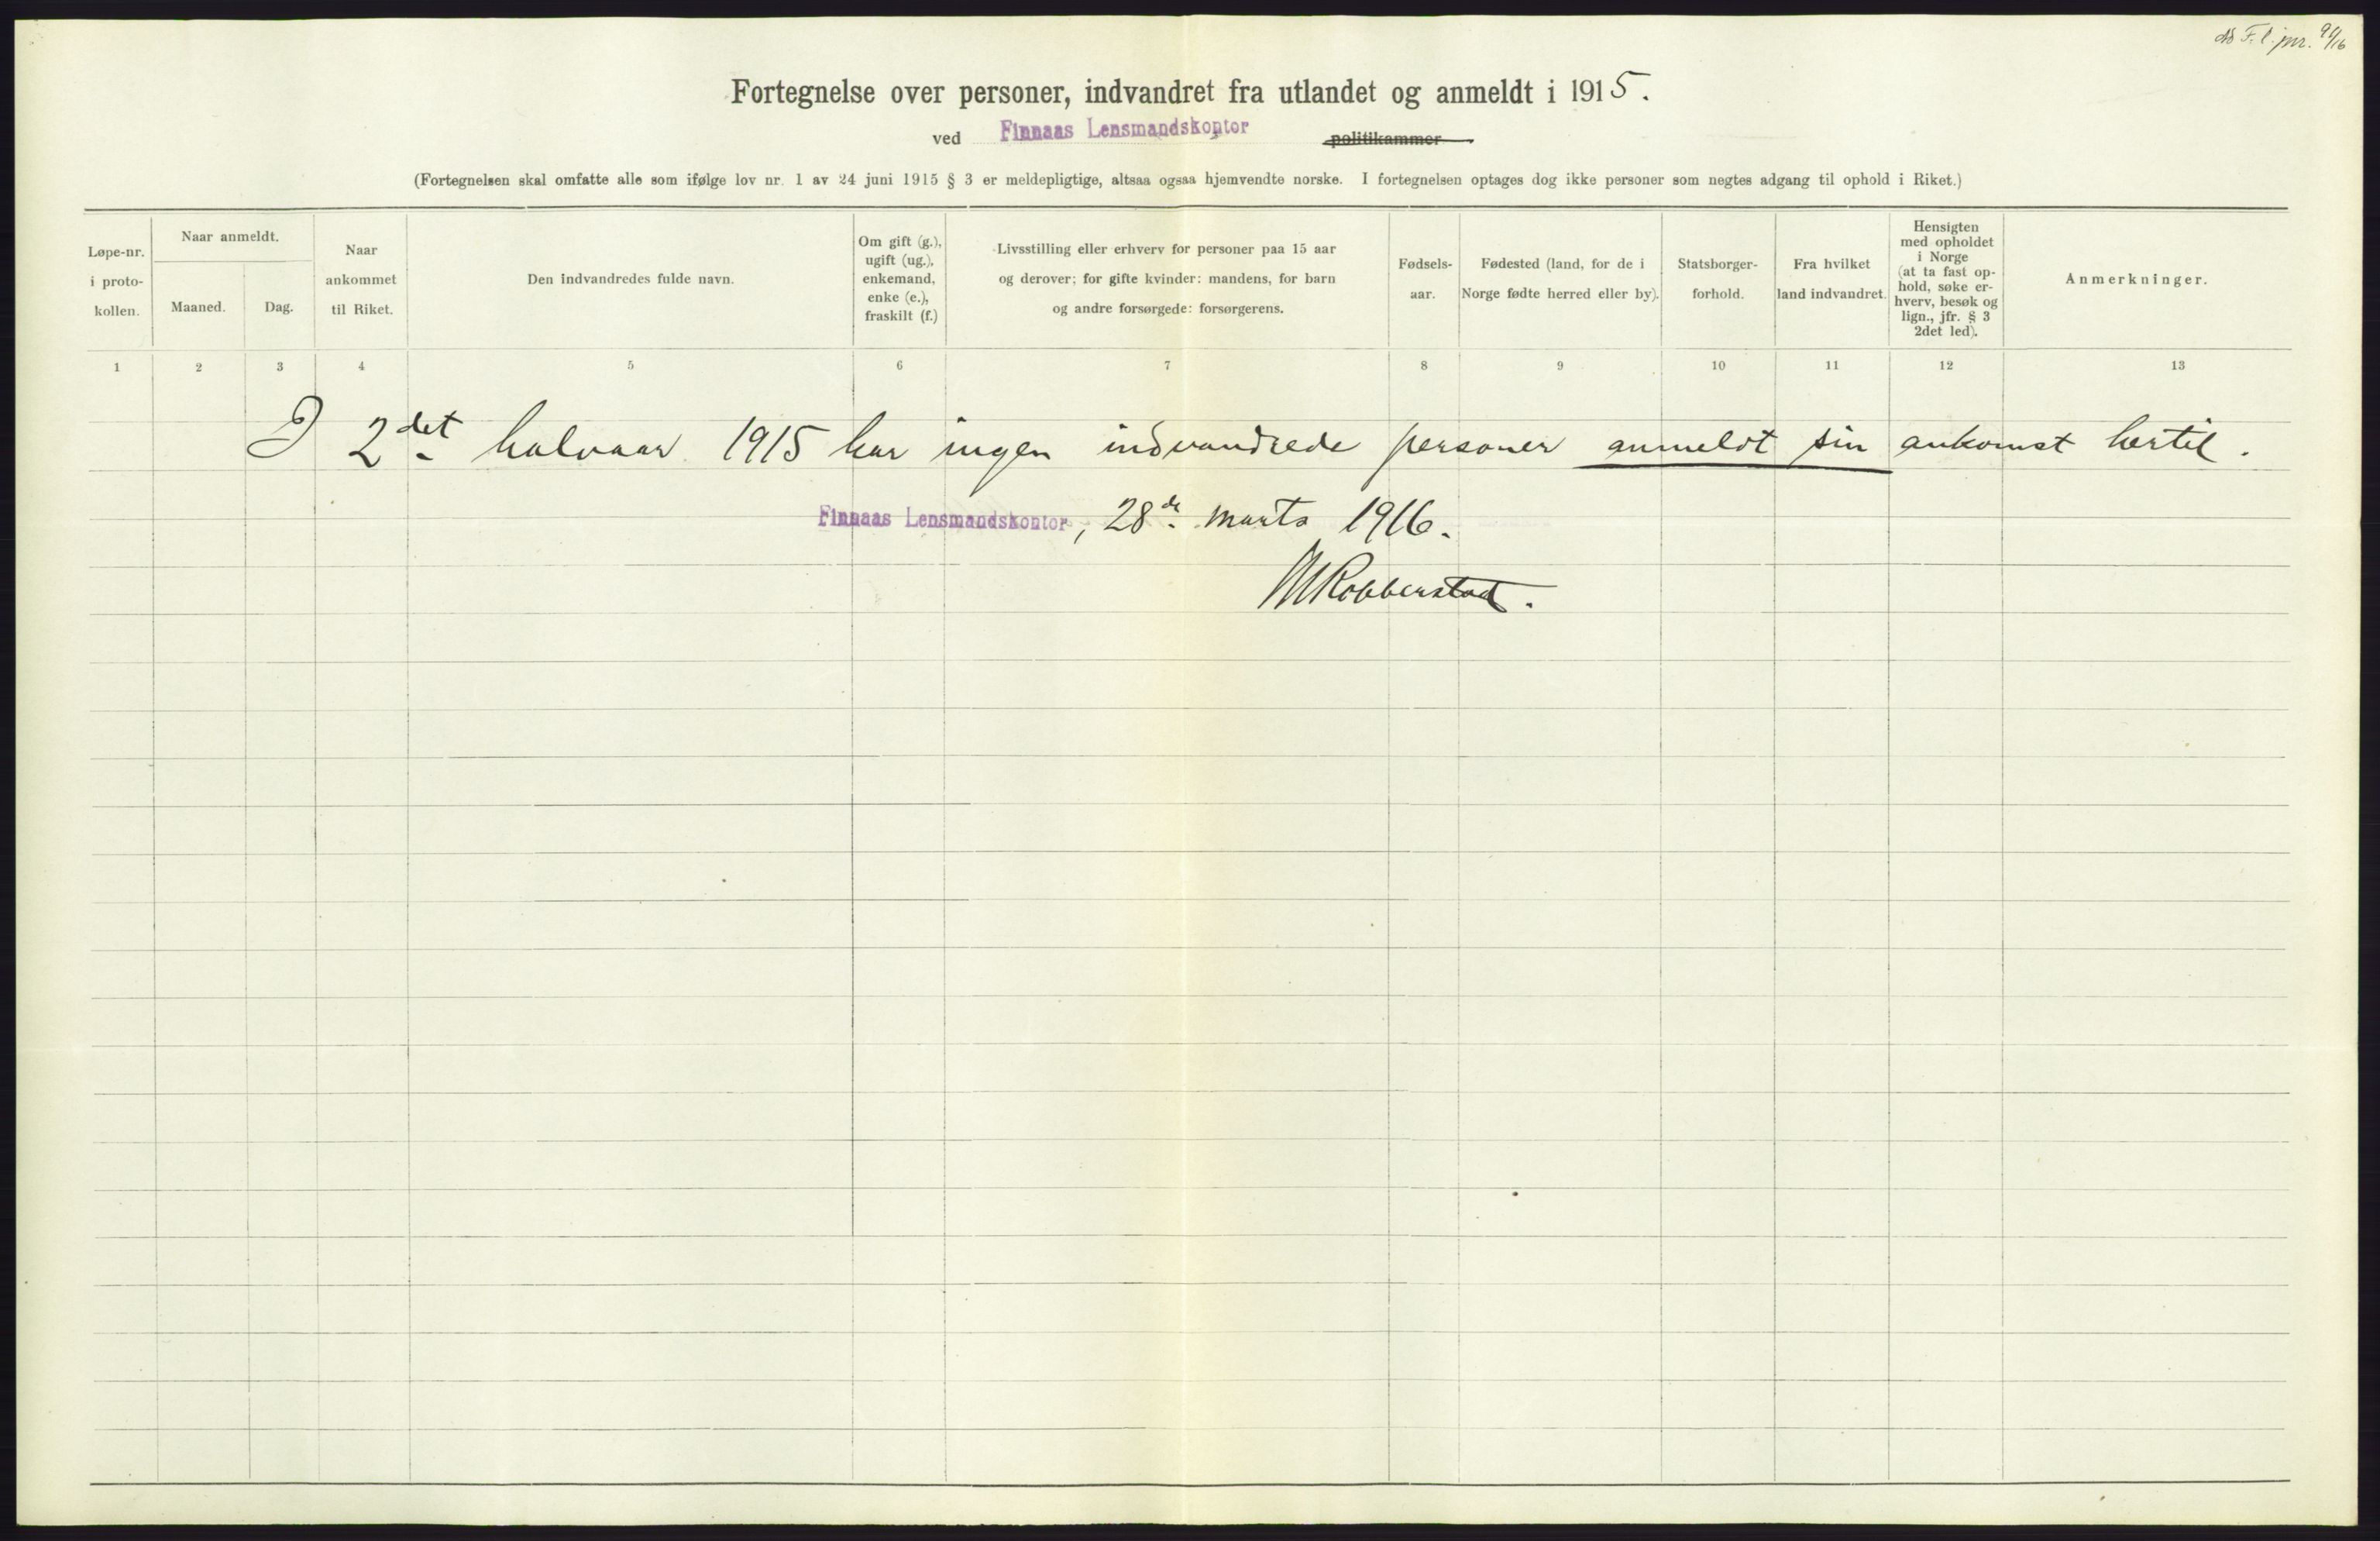 F. l. jnr. 99/16
Fortegnelse over personer, indvandret fra utlandet og anmeldt i 1915.
ved Finnaas Lensmandskontor politikammer
(Fortegnelsen skal omfatte alle som ifølge lov nr. 1 av 24 juni 1915 § 3 er meldepligtige, altsaa ogsaa hjemvendte norske. I fortegnelsen optages dog ikke personer som negtes adgang til ophold i Riket.)
Løpe-nr.
i proto-
kollen.
Naar anmeldt.
Maaned.
Dag.
Naar
ankommet
til Riket.
Den indvandredes fulde navn.
Om gift (g.),
ugift (ug.),
enkemand,
enke (e.),
fraskilt (f.)
Livsstilling eller erhverv for personer paa 15 aar
og derover; for gifte kvinder: mandens, for barn
og andre forsørgede: forsørgerens.
Fødsels-
aar.
Fødested (land, for de i
Norge fødte herred eller by).
Statsborger-
forhold.
Fra hvilket
land indvandret.
Hensigten
med opholdet
i Norge
(at ta fast op-
hold, søke er-
hverv, besøk og
lign., jfr. § 3
2det led).
Anmerkninger.
1 2 3 4 5 6 7 8 9 10 11 12 13
I 2det halvaar 1915 har ingen indvandrede personer anmeldt sin ankomst hertil.
Finnaas Lensmandskontor, 28de marts 1916.
M Robberstad.